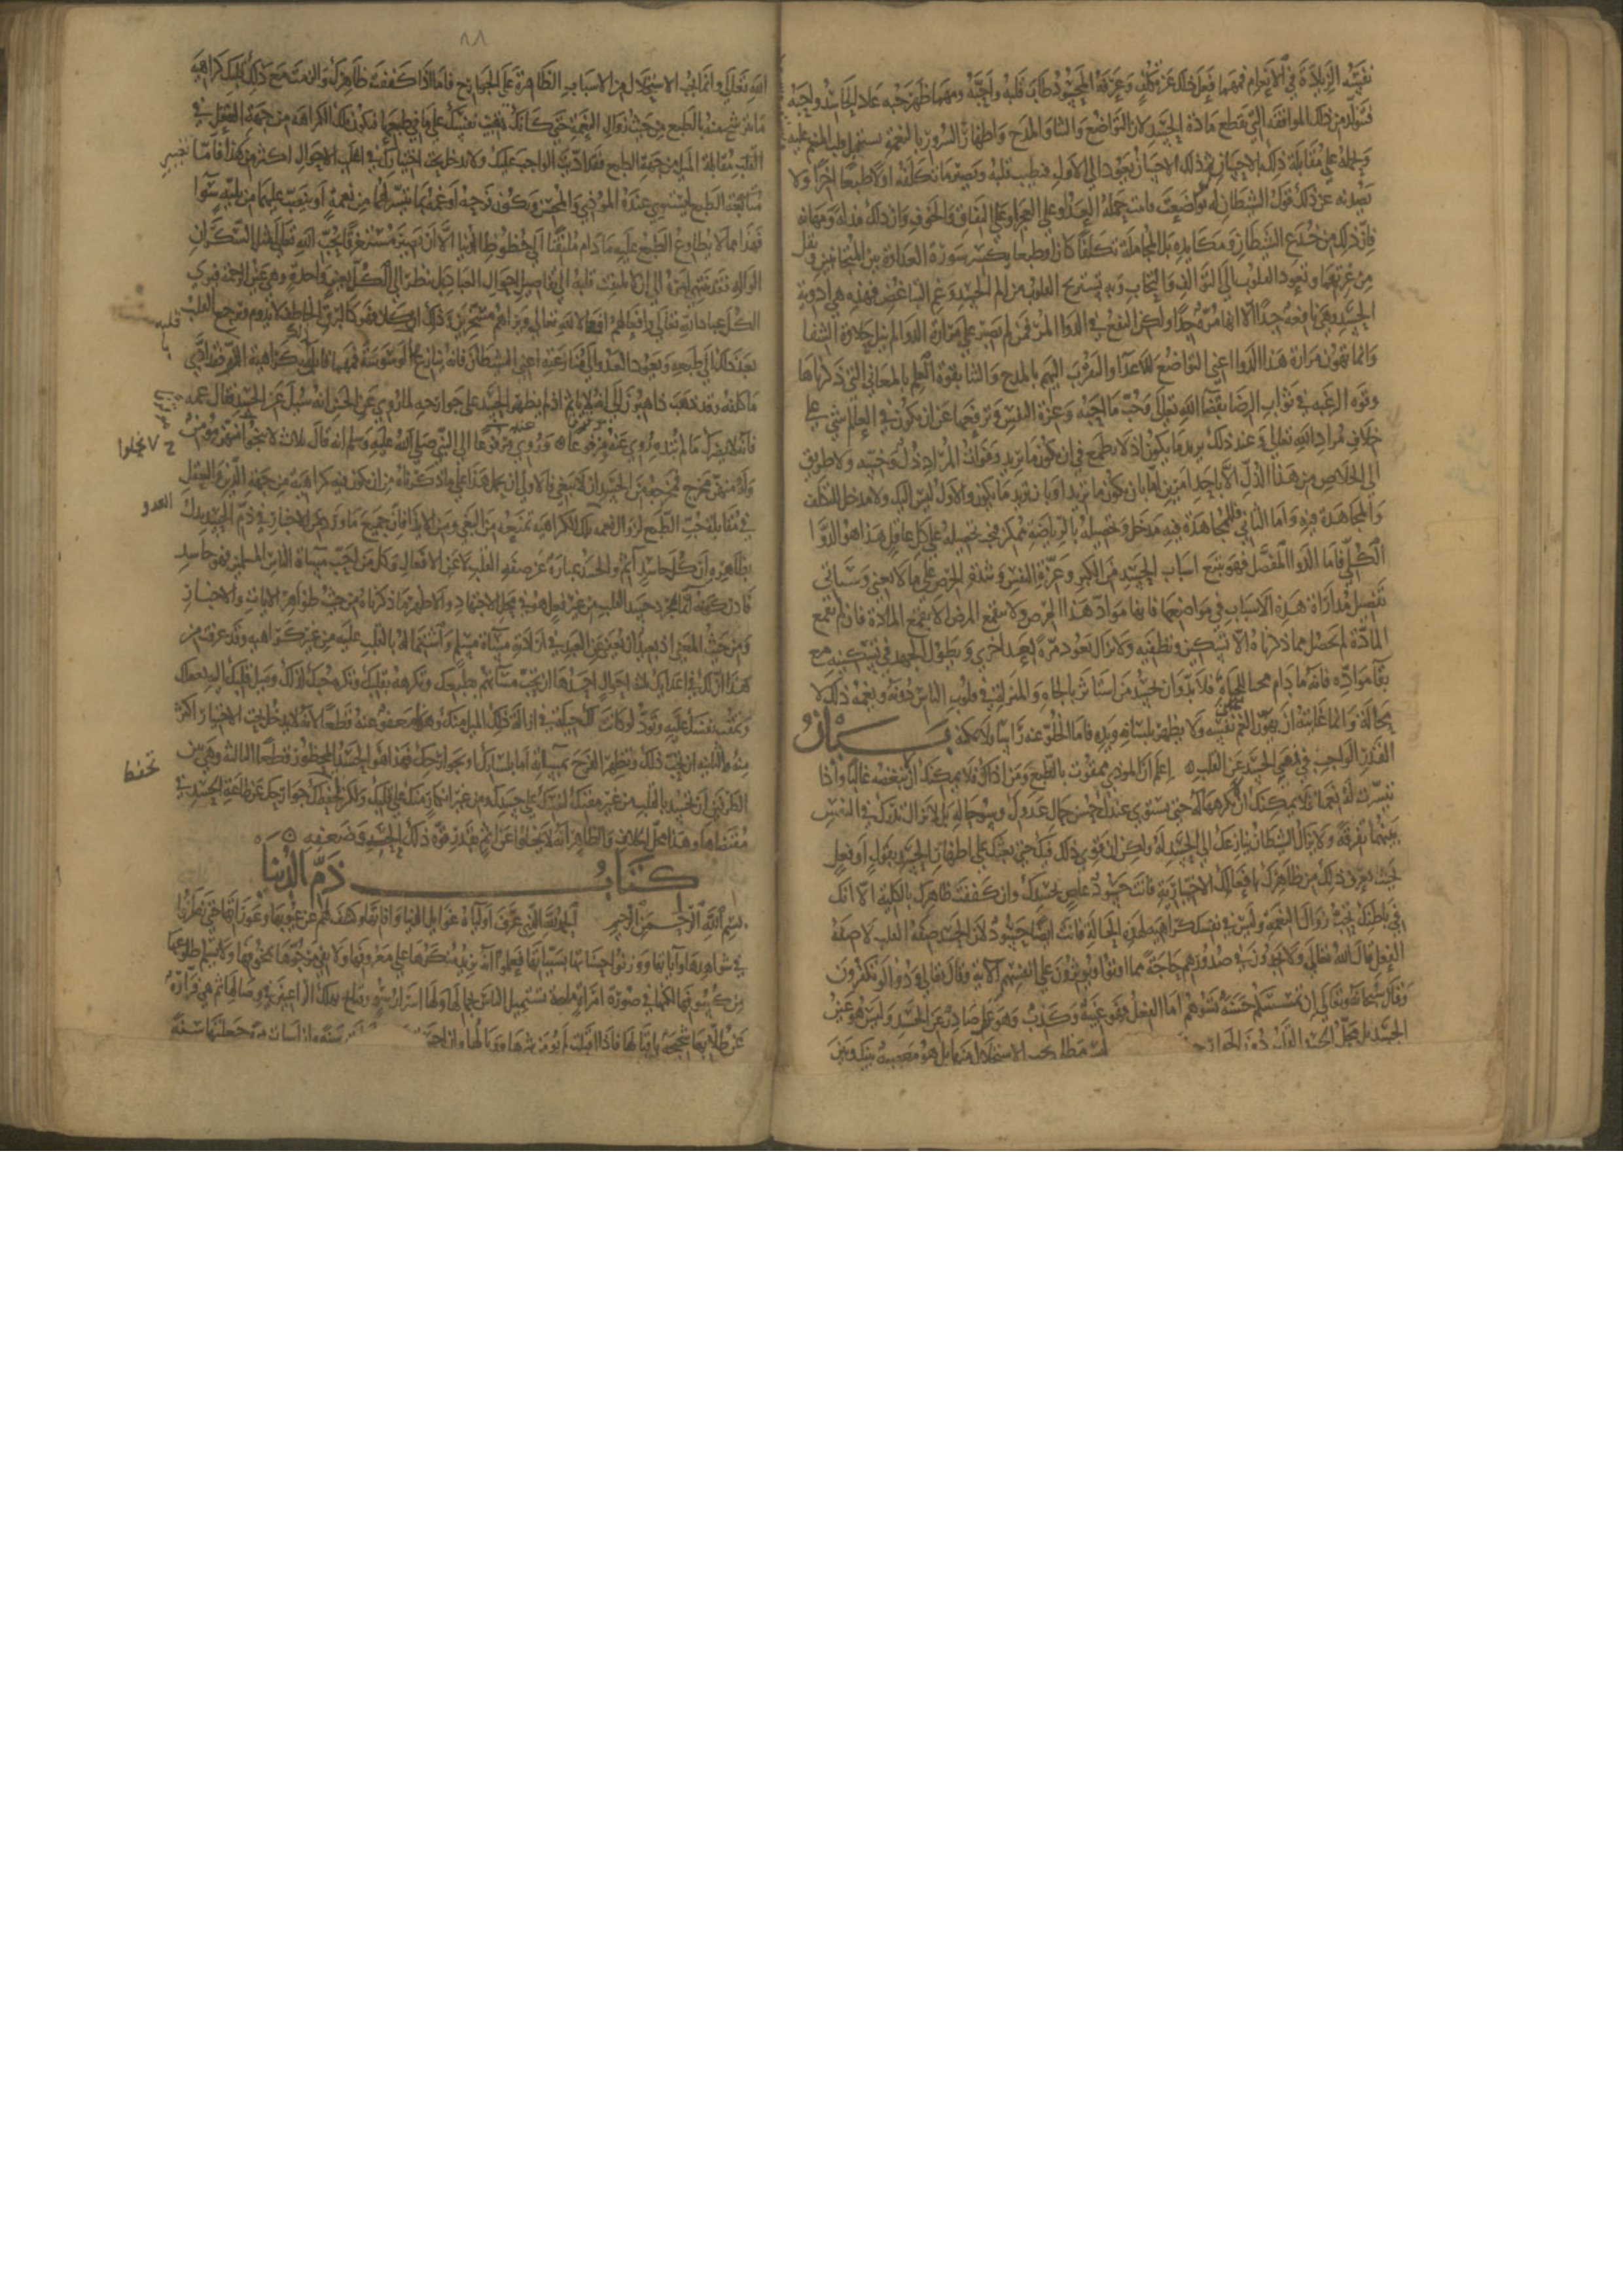 نفسه الزيادة في الانعام فمهما فعل ذلك عن تكلف وعرفه المحسود طاب قلبه واحبه ومهما ظهر حبه عاد الحاسد واحبه
فتولد من ذلك الموافقه التي تقطع مادة الحسد لان التواضع والثنا والمدح واظهار السرور بالنعمة يستميل قلب المنعم عليه
ويحمله على مقابلة ذلك بالاحسان ثم ذلك الاحسان يعود الى الاول فيطيب قلبه ويصير ما تكلفه اولا طبعا اخرا ولا
يصدنه عن ذلك قول الشيطان له لو تواضعت واثنيت حمله العدو على العجز او على النفاق والخوف وان ذلك مذلة ومهانة
فان ذلك من خدع الشيطان ومكايده بل المجاملة تكلفا كان او طبعا يكسر سورة العداوة من الجانبين ويقل
من غربها وتعود القلوب الى التوالف والتحاب وبه تستريح القلوب من الم الحسد وغم التباغض فهذه هي ادوية
الحسد وهي نافعة جدا الا انها مرة جدا ولكن النفع في الدوا المر فمن لم يصبر على مرارة الدوا لم ينل حلاوة الشفا
وانما تهون مرارة هذا الدوا اعني التواضع للاعدا والتقرب اليهم بالمدح والثنا بقوة العلم بالمعاني التي ذكرناها
وقوه الرغبه في ثواب الرضا بقضا الله تعالى وحب ما احبه وعزة النفس وترفعها عن ان يكون في العالم شي على
خلاف مراد الله تعالى وعند ذلك يريد ما يكون اذ لا يطمع في ان يكون ما يريد وفوات المراد ذل وخسه ولا طريق
الى الخلاص من هذا الذل الا باحد امرين اما بان يكون ما تريد او بان تريد ما يكون والاول ليس اليك ولا مدخل للتكلف
والمجاهدة فيه واما الثاني فللمجاهدة فيه مدخل وتحصيله بالرياضة ممكن فيجب تحصيله على كل عاقل هذا هو الدوا
الكلي فاما الدوا المفصل فهو تتبع اسباب الحسد من الكبر وعزة النفس وشدة الحرص على ما لا يعني وسياتي
تفصيل مداواة هذه الاسباب في مواضعها فانها مواد هذا المرض ولا ينقمع المرض الا بقمع المادة فان لم تقمع
المادة لم يحصل مما ذكرناه الا تسكين وتطفيه ولا يزال يعود مرة بعد اخرى ويطول الجهد في تسكينه مع
بقا مواده فانه ما دام محبا للجاه فلا بد وان يحسد من استاثر بالجاه والمنزلة في قلوب الناس دونه ويغمه ذلك لا
محالة وانما غايته ان يهون الغم على نفسه ولا يظهر بلسانه ويده فاما الخلو عنه راسا فلا يمكنه بيان
القدر الواجب في نفي الحسد عن القلب اعلم ان الموذي ممقوت بالطبع ومن اذاك فلا يمكنك ان لا تبغضه غالبا واذا
تيسرت له نعمة فلا يمكنك ان لا تكرهها له حتى يستوي عندك حسن حال عدوك وسو حاله بل لا تزال تدرك في النفس
بينهما تفرقة ولا يزال الشيطان ينازعك الى الحسد له ولكن ان قوي ذلك فيك حتى بعثك على اظهار الحسد بقول او فعل
بحيث يعرف ذلك من ظاهرك بافعالك الاختيارية فانت حسود عاص بحسدك وان كففت ظاهرك بالكلية الا انك
في باطنك تحب زوال النعمة وليس في نفسك كراهية لهذه الحالة فانت ايضا حسود لان الحسد صفة القلب لا صفة
الفعل قال الله تعالى ولا يجدون في صدورهم حاجة مما اوتوا ويوثرون على انفسهم الاية وقال تعالى ودوا لو تكفرون
وقال سبحانه وتعالى ان تمسسكم حسنة تسوهم اما الفعل فهو غيبة وكذب وهو عمل صادر عن الحسد وليس هو عين
الحسد بل محل الحسد القلب دون الجوارح مظلمة يجب الاستحلال منها بل هو معصية بينك وبين
٨٨
الله تعالى وانما يجب الاستحلال من الاسباب الظاهرة على الجوارح فاما اذا كففت ظاهرك والزمت مع ذلك قلبك كراهية
ما يترشح منه بالطبع من حيث زوال النعمة حتى كانك تمقت نفسك على ما في طبعها فتكون تلك الكراهة من جهة العقل في
القلب مقابلة الميل من جهة الطبع فقد اديت الواجب عليك ولا يدخل تحت اختيارك في اغلب الاحوال اكثر من هذا فاما تغيير
الطبع ليستوي عنده الموذي والمحسن ويكون فرحه او غمه بما تيسر لهما من نعمة او ينصب عليهما من بلية سوا
فهذا مما لا يطاوع الطبع عليه ما دام ملتفتا الى حظوظ الدنيا الا ان يصير مستغرقا بحب الله تعالى مثل السكران
الواله فقد ينتهي امره الى ان لا يلتفت قلبه الى تفاصيل احوال العباد بل ينظر الى الكل بعين واحدة وهي عين الرحمة فيرى
الكل عباد الله تعالى وافعالهم افعالا لله تعالى ويراهم مسخرين وذلك ان كان فهو كالبرق الخاطف لا يدوم ويرجع القلب
بعد ذلك الى طبعه ويعود العدو الى منازعته اعني الشيطان فانه ينازع بالوسوسة فمهما قابل ذلك بكراهية الزم قلبه فقد ادى
ما كلفه وقد ذهب ذاهبون الى انه لا ياثم اذا لم يظهر الحسد على جوارحه لما روي عن الحسن انه سئل عن الحسد فقال غمه
فانه لا يضرك ما لم تبده وروي عنه موقوفا ومرفوعا الى النبي صلى الله عليه وسلم انه قال ثلاث لا ينجو منهن مومن
وله منهن مخرج فمخرجه من الحسد ان لا يبغي فالاولى ان يحمل هذا على ما ذكرناه من ان يكون فيه كراهية من جهة الدين والعقل
في مقابلة حب الطبع لزوال نعمة العدو وتلك الكراهية تمنعه من البغي ومن الايذا فان جميع ما ورد من الاخبار في ذم الحسد يدل
بظاهره ان كل حاسد اثم والحسد عبارة عن صفة القلب لا عن الافعال وكل من يحب مساة الناس المسلمين فهو حاسد
فاذن كونه اثما بمجرد حسد القلب من غير فعل هو في محل الاجتهاد والاظهر ما ذكرناه من حيث ظواهر الايات والاخبار
ومن حيث المعنى اذ يبعد ان يعفى عن العبد في ارادته مساة مسلم واشتماله بالقلب عليه من غير كراهية وقد عرفت من
هذا ان لك في اعدائك ثلاثة احوال احدها ان تحب مساتهم بطبعك وتكره حبك لذلك وميل قلبك اليه بعقلك
وتمقت نفسك عليه وتود لو كانت لك حيلة في ازالة ذلك الميل منك وهذا معفو عنه قطعا لانه لا يدخل تحت الاختيار اكثر
منه والثانية ان تحب ذلك وتظهر الفرح بمساته اما بلسانك او بجوارحك فهذا هو الحسد المحظور قطعا الثالثة وهي بين
الطرفين ان تحسد بالقلب من غير مقتك لنفسك على حسدك ومن غير انكار منك على قلبك ولكن تحفظ جوارحك عن طاعة الحسد في
مقتضاها وهذا محل الخلاف والظاهر انه لا يخلوا عن اثم بقدر قوة ذلك الحسد وضعفه
كتاب ذم الدنيا
بسم الله الرحمن الرحيم الحمد لله الذي عرف اولياه غوايل الدنيا وافاتها وكشف لهم عن عيوبها وعوراتها حتى نظروا
في شواهدها واياتها ووزنوا حسناتها بسيياتها فعلموا انه يزيد منكرها على معروفها ولا يفي مرجوها بمخوفها ولا يسلم طلوعها
من كسوفها لكنها في صورة امراة مليحة تستميل الناس بجمالها ولها اسرار سو وقبايح تهلك الراغبين في وصالها ثم هي فرارة
عن طلابها شحيحة باقبالها فاذا اقبلت لم يومن شرها ووبالها وان احسنت سنة وان اسات مرة جعلتها سنة
نحوا
العدو
تحفظ